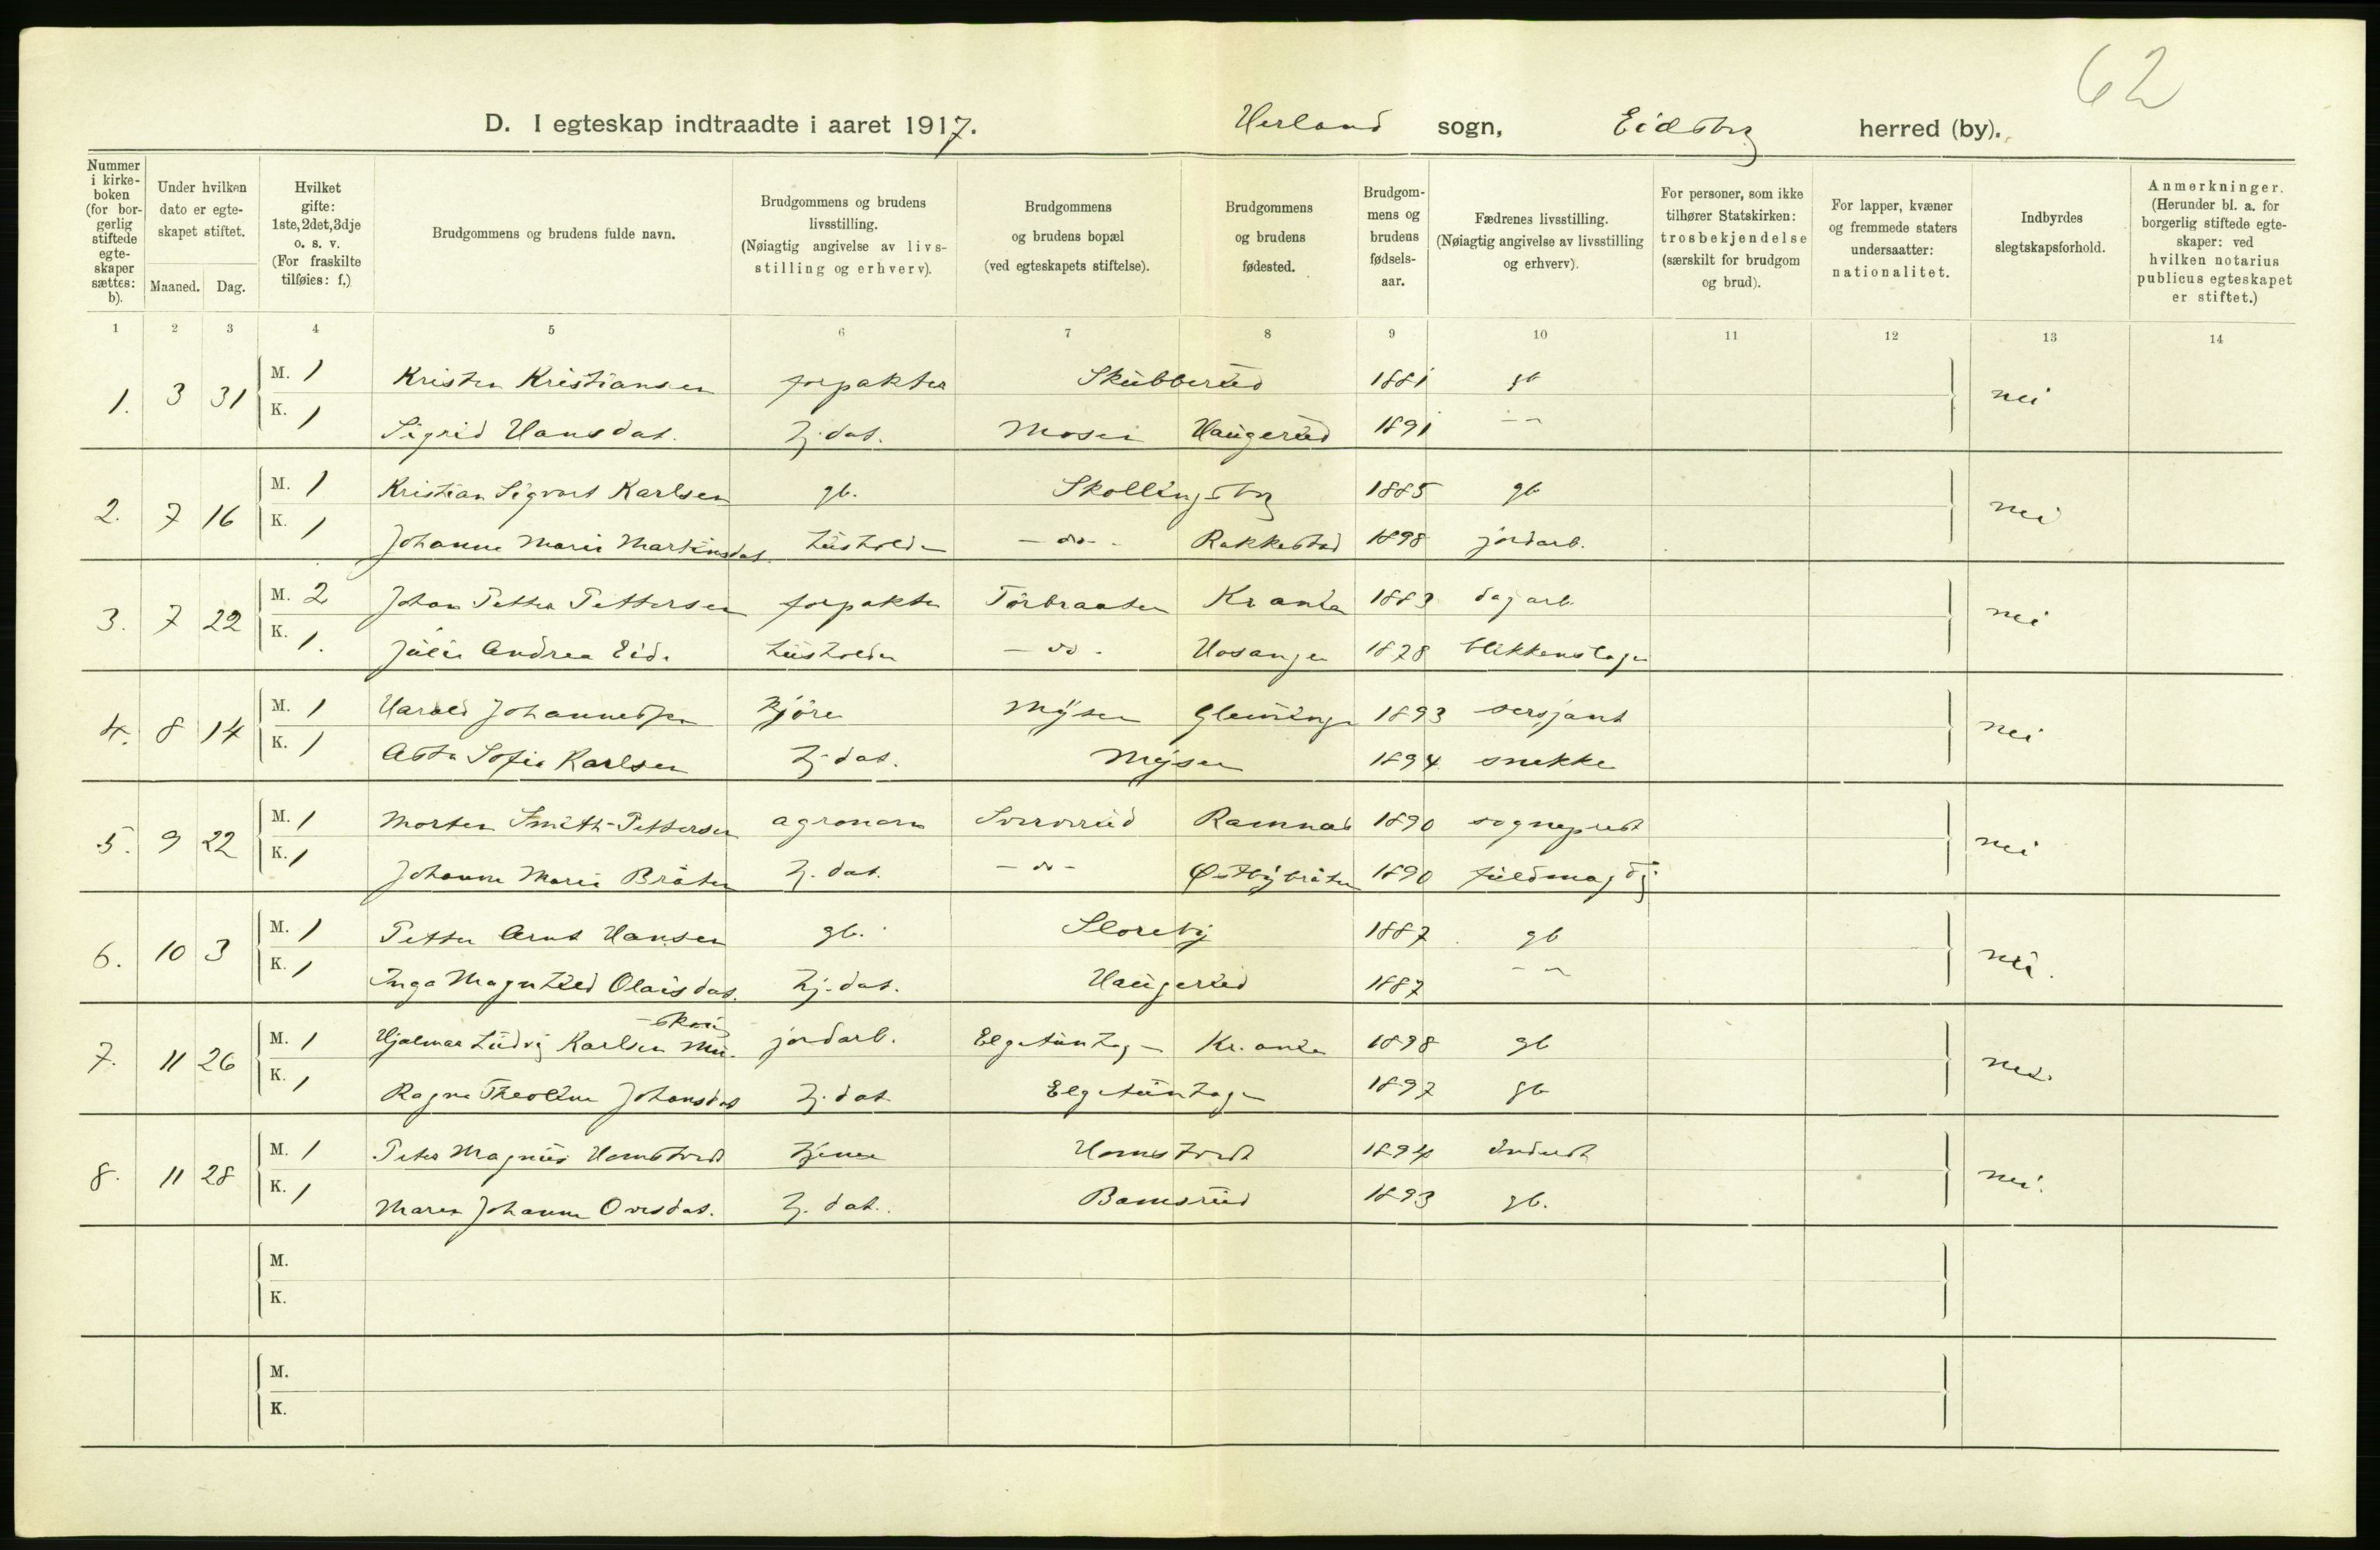 62
D. I egteskap indtraadte i aaret 1917. Herland sogn, Eidsberg herred (by).
Nummer i kirke-boken (for bor-gerlig stiftede egte-skaper sættes: b).
Under hvilken dato er egte-skapet stiftet. Maaned. Dag.
Hvilket gifte: 1ste, 2det, 3dje o. s. v. (For fraskilte tilføies: f.)
Brudgommens og brudens fulde navn.
Brudgommens og brudens livsstilling. (Nøiagtig angivelse av livs-stilling og erhverv).
Brudgommens og brudens bopæl (ved egteskapets stiftelse).
Brudgommens og brudens fødested.
Brudgom-mens og brudens fødsels-aar.
Fædrenes livsstilling. (Nøiagtig angivelse av livsstilling og erhverv).
For personer, som ikke tilhører Statskirken: trosbekjendelse (særskilt for brudgom og brud).
For lapper, kvæner og fremmede staters undersaatter: nationalitet.
Indbyrdes slegtskapsforhold.
Anmerkninger. (Herunder bl. a. for borgerlig stiftede egte-skaper: ved hvilken notarius publicus egteskapet er stiftet.)
1 2 3 4 5 6 7 8 9 10 11 12 13 14
1. 3 31 M. 1 Kristen Kristiansen forpakter Skubberud 1881 gb nei
K. 1 Sigrid Hansdat. hj. dat. Mosei Haugerud 1891 – –
2. 7 16 M. 1 Kristian Sigvart Karlsen gb. Skollingsberg 1885 gb nei
K. 1 Johanne Marie Martinsdat. husholder – do – Rakkestad 1898 jordarb.
3. 7 22 M. 2 Johan Petter Pettersen forpakter Torbraaten Kr.ania 1883 dagarb. nei
K. 1. Julie Andrea Eide husholder – do – Hosanger 1878 blikkenslager
4. 8 14 M. 1 Harald Johannessen kjører Mysen Glemminge 1893 sersjant nei
K. 1 Asta Sofie Karlsen hj. dat. Mysen 1894 snekker
5. 9 22 M. 1 Morten Smith-Pettersen agronom Ramnæs 1890 sogneprest nei
K. 1 Johanne Marie Bråten hj. dat. – do – Østbybråten 1890 fuldmægtig
6. 10 3 M. 1 Petter Arnt Hansen gb. Sloreby 1887 gb nei.
K. 1 Inga Magnhild Olaisdat. hj. dat. Haugerud 1887 – –
7. 11 26 M. 1 Hjalmar Ludvig Karlsen jordarb. Elgetunhagen Kr.ania 1898 gb nei.
K. 1 Ragna Theoline Johansdat hj. dat Elgetunhagen 1897 gb
8. 11 28 M. 1 Peter Magnus Homstvedt tjener Homstvedt 1894 nei.
K. 1 Maren Johanne Ovesdat. hj. dat. Bamsrud 1893 gb.
M.
K.
M.
K.